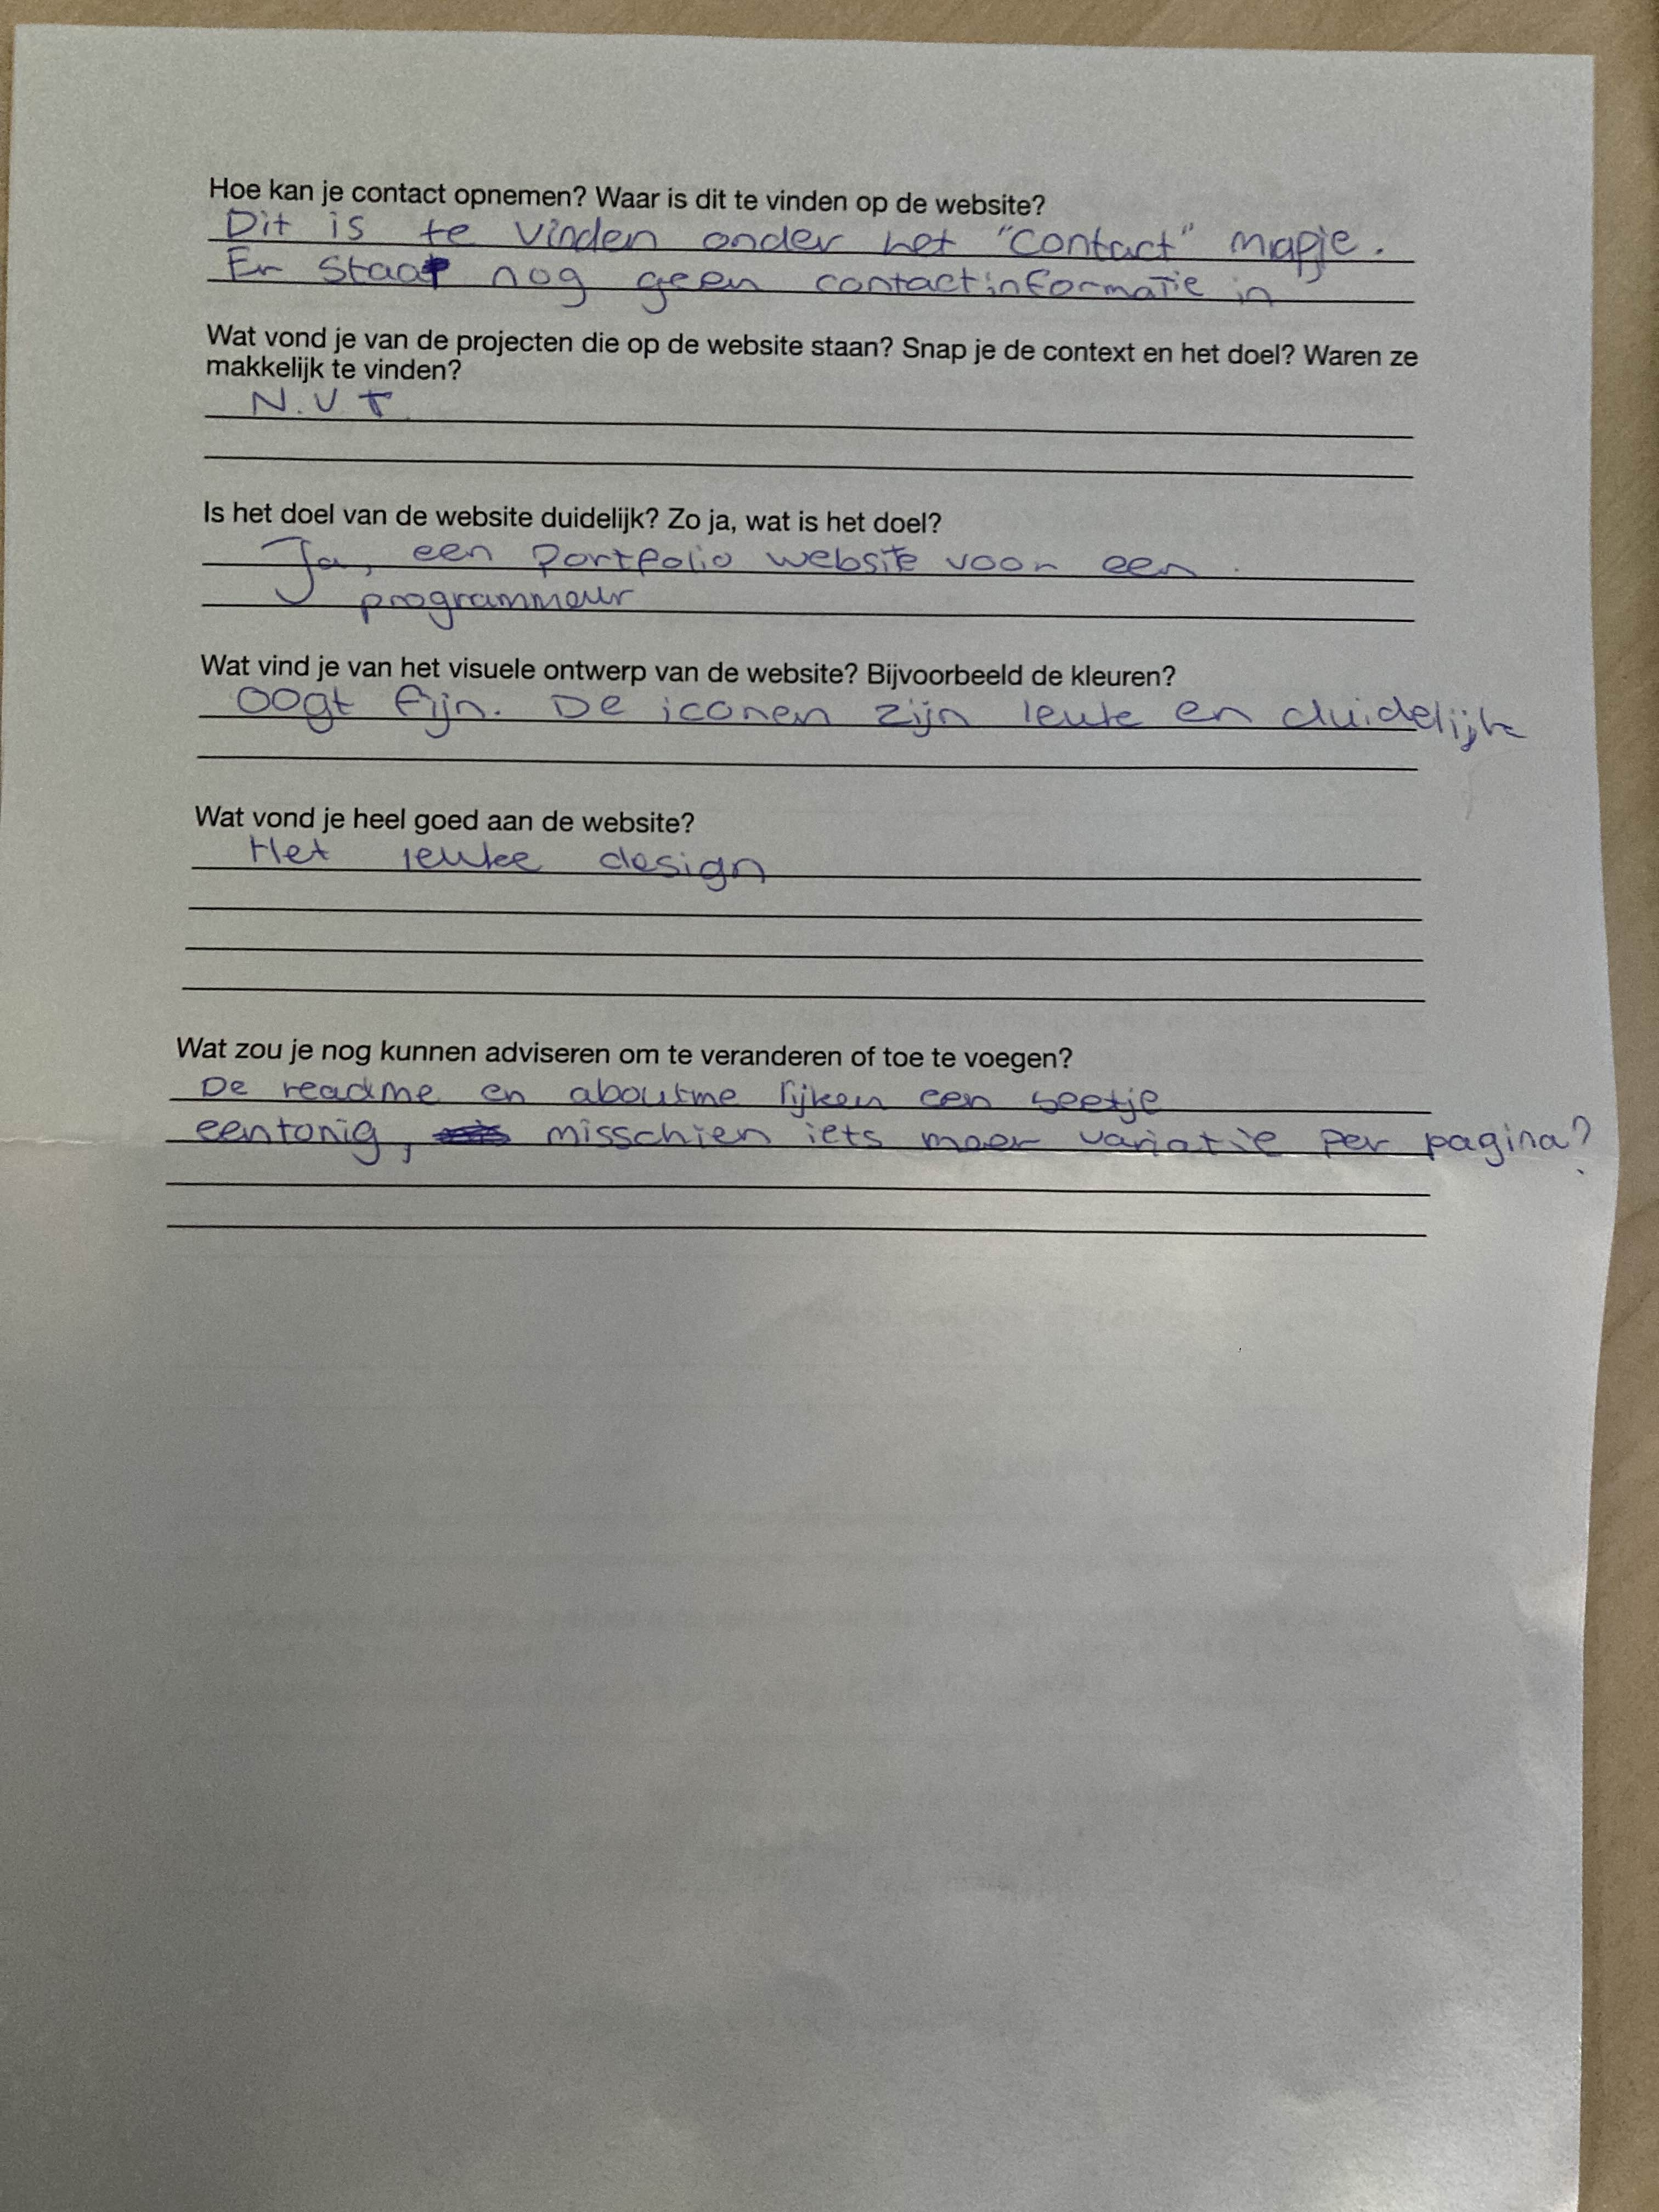 Hoe kan je contact opnemen? Waar is dit te vinden op de website?
Dit is te vinden onder het "contact" mapje.
Er staat nog geen contactinformatie in
Wat vond je van de projecten die op de website staan? Snap je de context en het doel? Waren ze
makkelijk te vinden?
N.V.T.
Is het doel van de website duidelijk? Zo ja, wat is het doel?
Ja, een portfolio website voor een
programmeur
Wat vind je van het visuele ontwerp van de website? Bijvoorbeeld de kleuren?
Oogt fijn. De iconen zijn leuk en duidelijk
Wat vond je heel goed aan de website?
Het leuke design
Wat zou je nog kunnen adviseren om te veranderen of toe te voegen?
De readme en aboutme lijken een beetje
eentonig, misschien iets meer variatie per pagina?